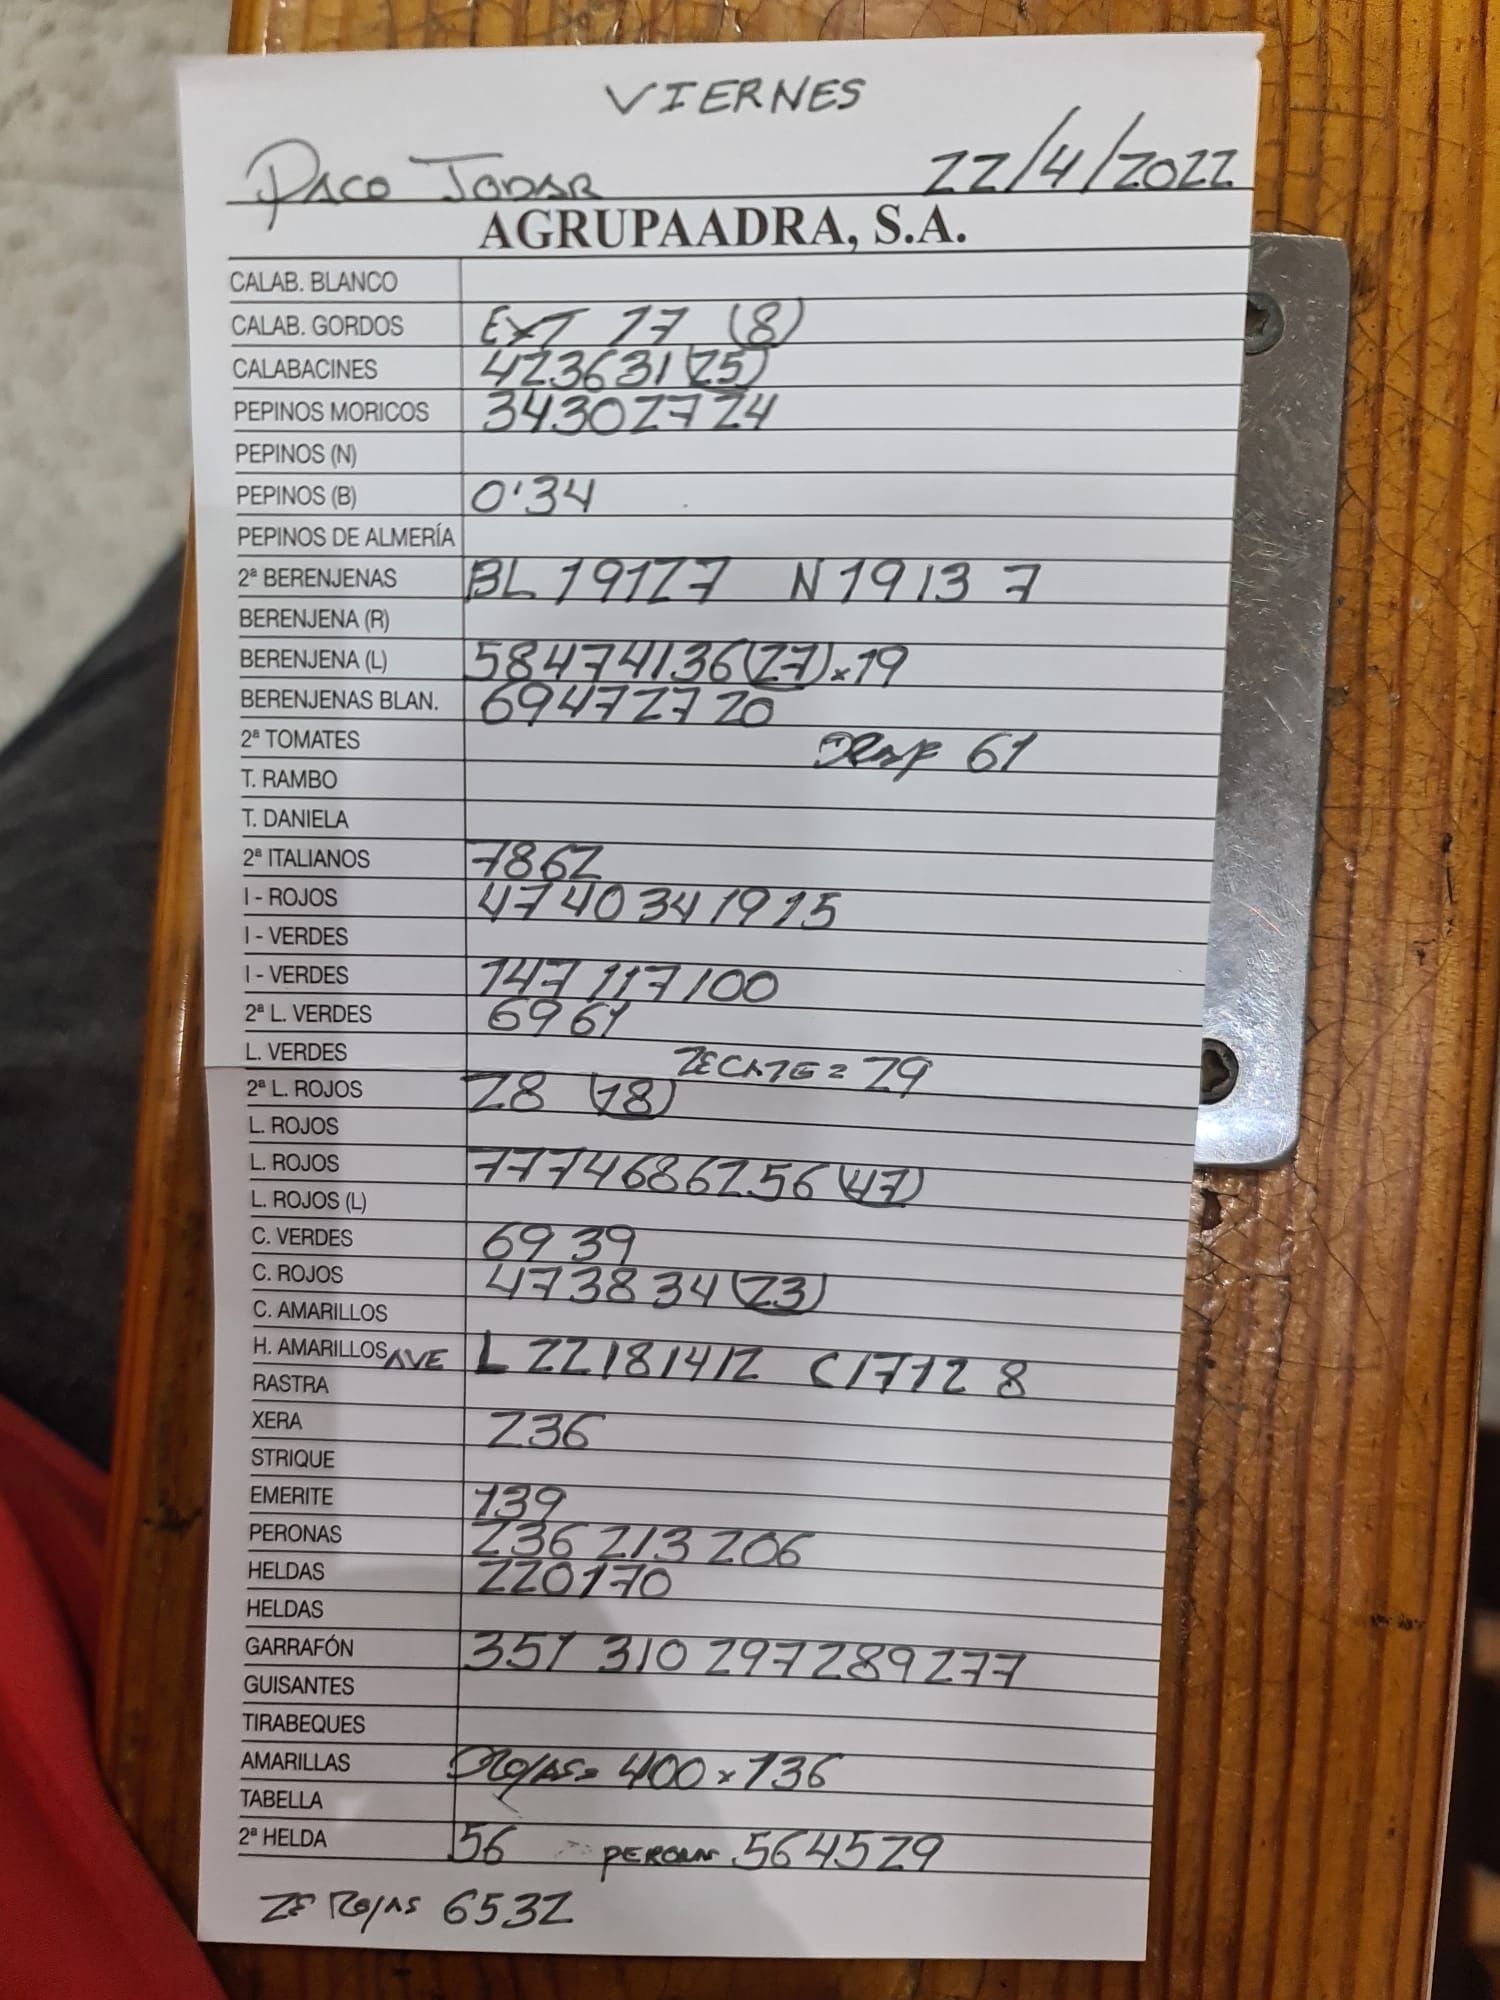 VIERNES
PACO JODAR 22/4/2022
AGRUPAADRA, S.A.
CALAB. BLANCO
CALAB. GORDOS EXT 17 (8)
CALABACINES 423631(25)
PEPINOS MORICOS 3430 27 24
PEPINOS (N)
PEPINOS (B) 0'34
PEPINOS DE ALMERÍA
2ª BERENJENAS BL 19127 N 1913 7
BERENJENA (R)
BERENJENA (L) 58474136(27)x19
BERENJENAS BLAN. 69472720
2ª TOMATES 61
T. RAMBO
T. DANIELA
2ª ITALIANOS 7862
I - ROJOS 4740341915
I - VERDES
I - VERDES 147 117 100
2ª L. VERDES 6961
L. VERDES 29
2ª L. ROJOS 28 (18)
L. ROJOS
L. ROJOS 7774686256(47)
L. ROJOS (L)
C. VERDES 69 39
C. ROJOS 473834(23)
C. AMARILLOS
H. AMARILLOS AVE L 22181412 C1712 8
RASTRA
XERA 236
STRIQUE
EMERITE 139
PERONAS 236 213 206
HELDAS 220170
HELDAS
GARRAFÓN 351 310 297289277
GUISANTES
TIRABEQUES
AMARILLAS ROJAS= 400x136
TABELLA
2ª HELDA 56 PERONA 564529
2ª ROJAS 6532